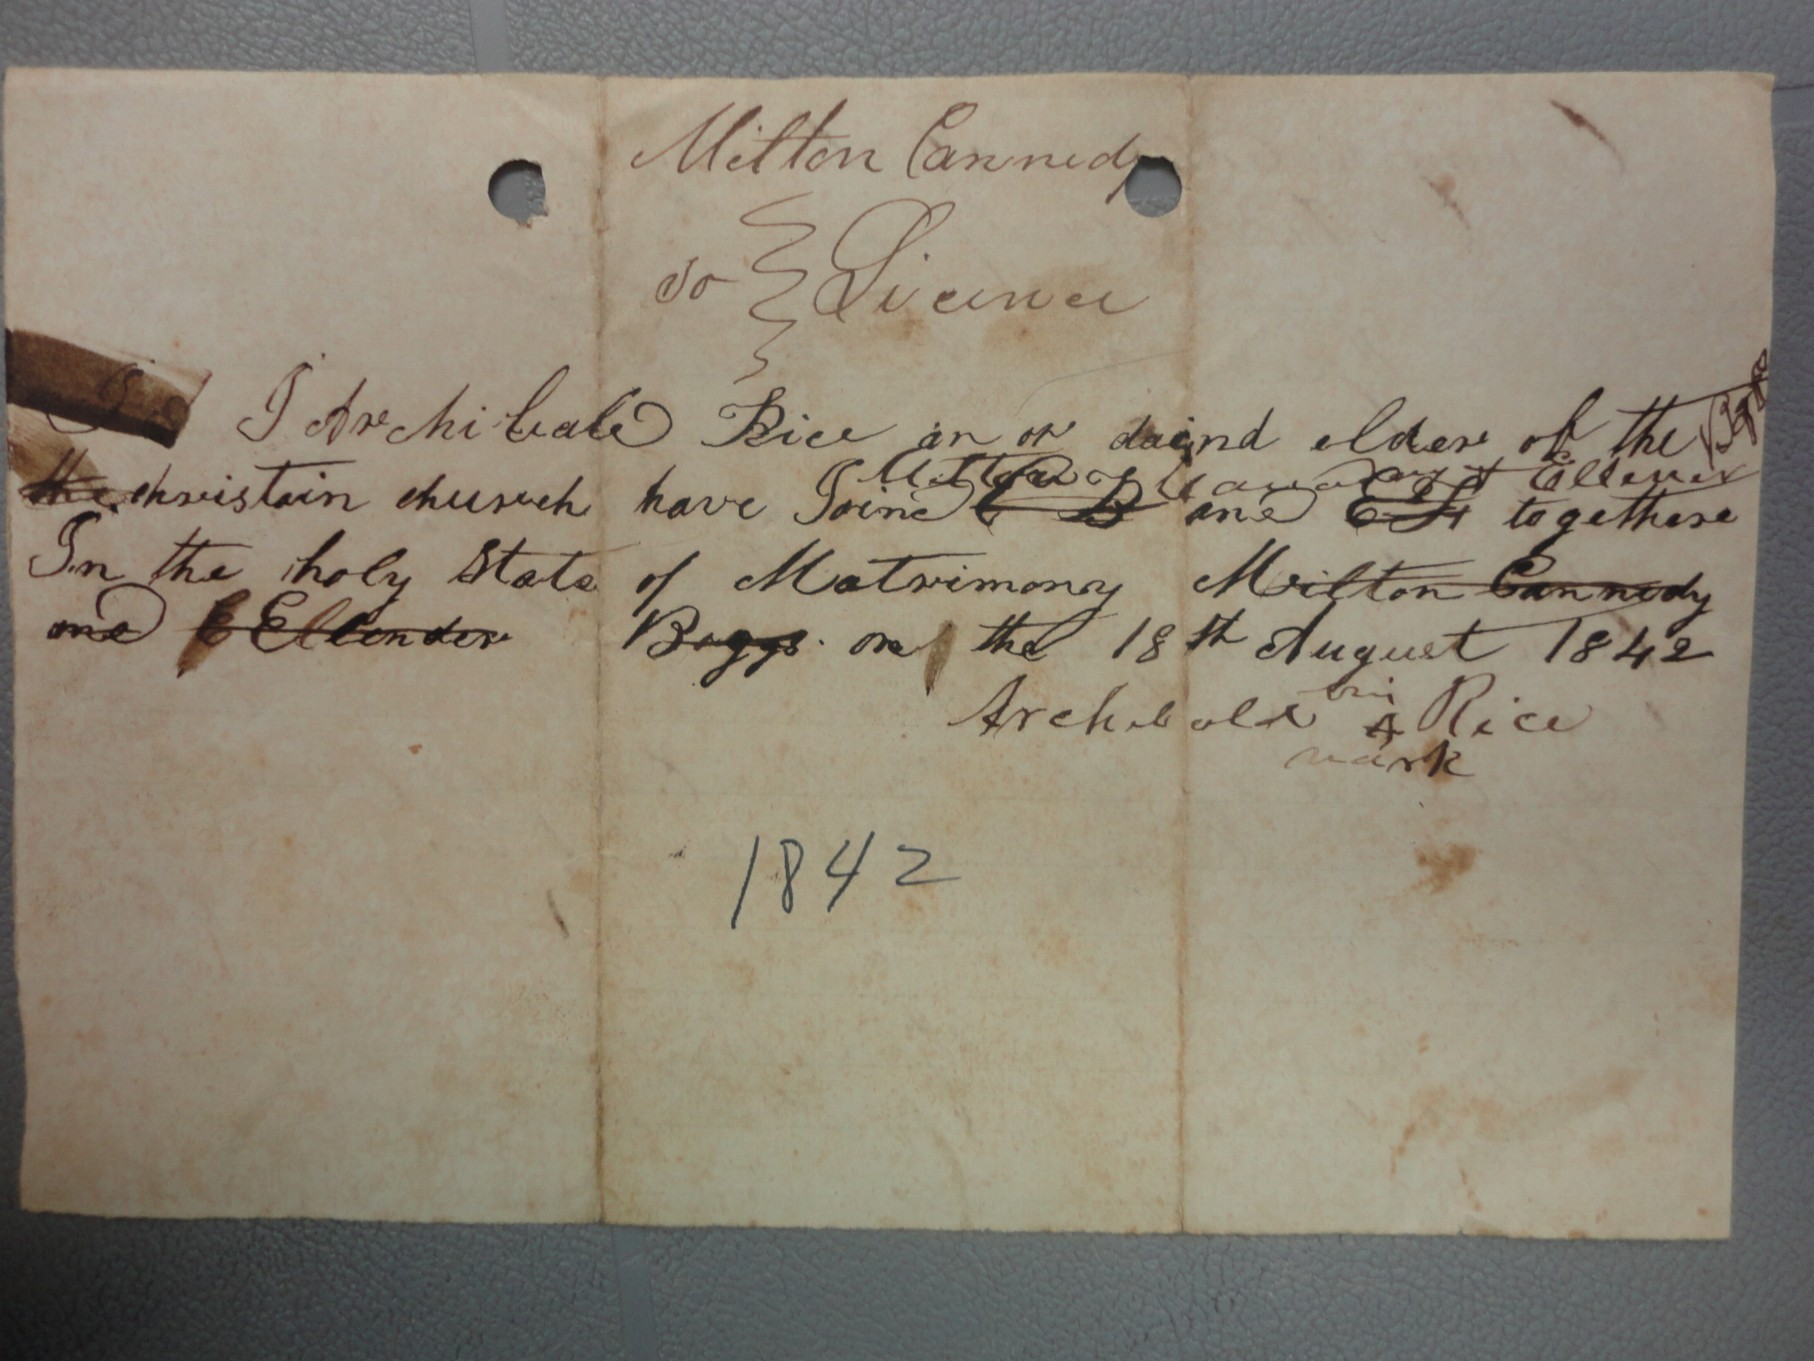 Milton Cannedy
to Licence
I Archibald Rice an or daind elder of the
the christain church have Joind and togethere
Milton Cannedy & Ellender Boggs
In the holy State of Matrimony Milton Cannedy
and Ellender Boggs on the 18th August 1842
Archabold his Rice
mark
1842